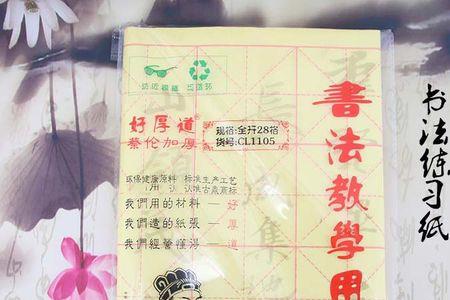 好厚道
蔡伦加厚
规格:全开28格
货号:CL1105
环保健康原料
标准生产工艺
我們用的材料—好
我們造的紙張—厚
我們經營懂得—道
書法教學用
书法练习纸